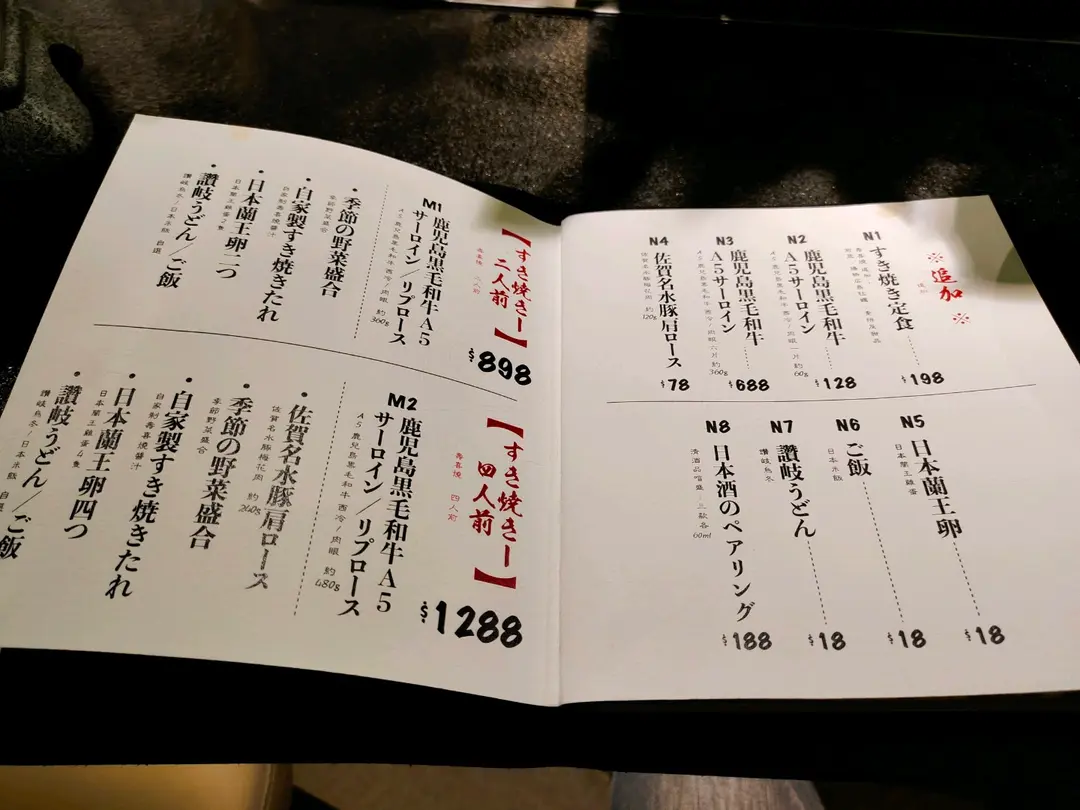 【すき焼きー
二人前】
壽喜燒 二人前
$898
M1
鹿児島黒毛和牛A5
サーロイン/リブロース
A5鹿兒島黑毛和牛西冷/肉眼 約360g
・季節の野菜盛合
季節野菜盛合
・自家製すき焼きたれ
自家制壽喜燒醬汁
・日本蘭王卵二つ
日本蘭王雞蛋2隻
・讃岐うどん/ご飯
讚岐烏冬/日本米飯 自選
【すき焼きー
四人前】
壽喜燒 四人前
$1288
M2
鹿児島黒毛和牛A5
サーロイン/リブロース
A5鹿兒島黑毛和牛西冷/肉眼 約480g
・佐賀名水豚肩ロース
佐賀名水豚梅花肉 約240g
・季節の野菜盛合
季節野菜盛合
・自家製すき焼きたれ
自家制壽喜燒醬汁
・日本蘭王卵四つ
日本蘭王雞蛋4隻
・讃岐うどん/ご飯
讚岐烏冬/日本米飯 自選
※追加※
追加
N1
すき焼き定食
$198
N2
鹿児島黒毛和牛
A5サーロイン
A5鹿兒島黑毛和牛西冷/肉眼 一片 約60g
$128
N3
鹿児島黒毛和牛
A5サーロイン
A5鹿兒島黑毛和牛西冷/肉眼 六片 約360g
$688
N4
佐賀名水豚肩ロース
佐賀名水豚梅花肉 約120g
$78
N5
日本蘭王卵
日本蘭王雞蛋
$18
N6
ご飯
日本米飯
$18
N7
讃岐うどん
讚岐烏冬
$18
N8
日本酒のペアリング
清酒品嚐盛 三款各60ml
$188